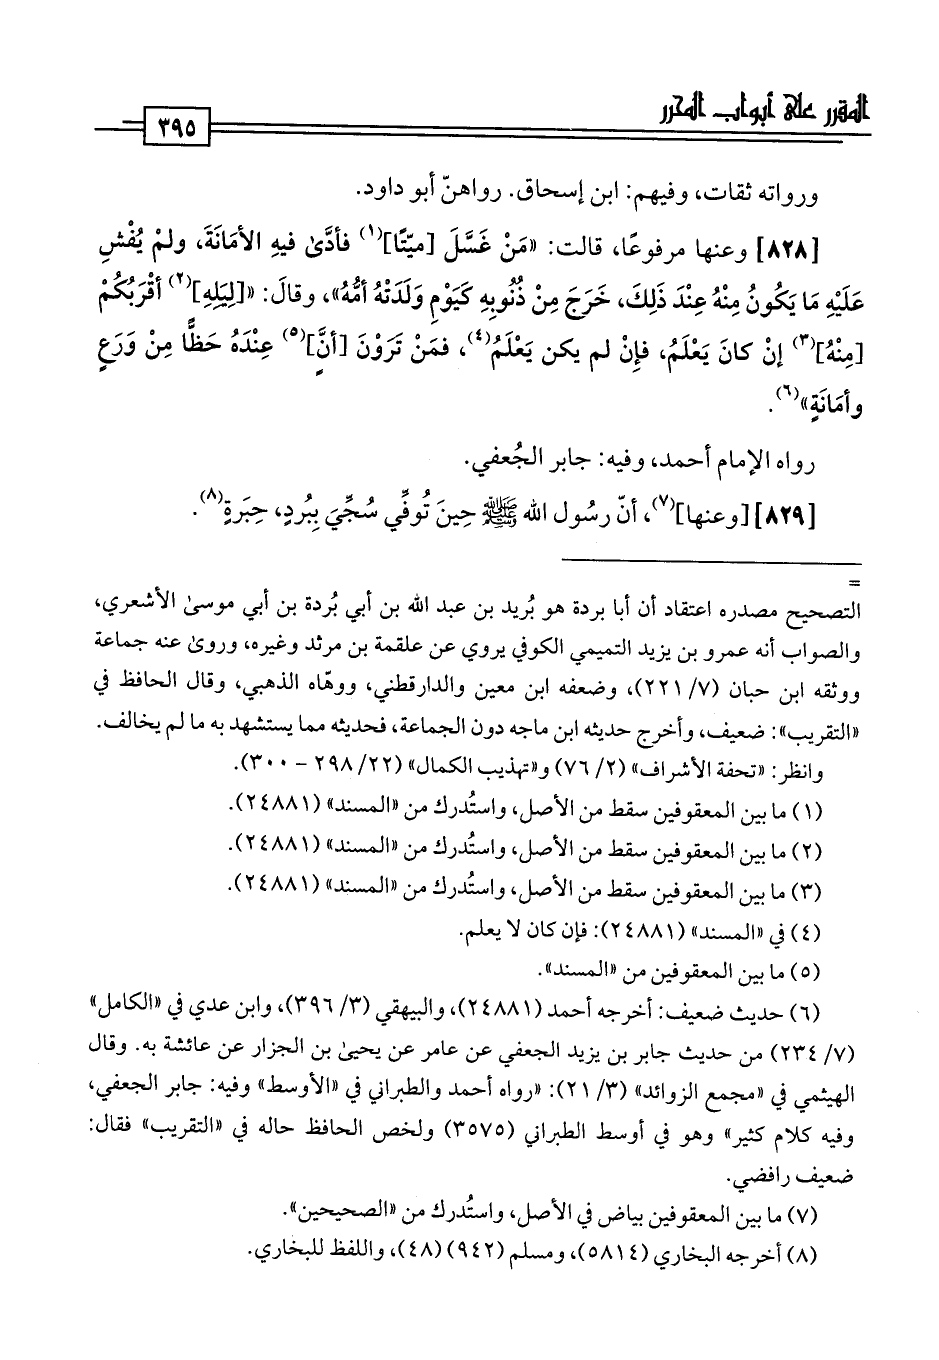 المقرر على أبواب المحرر
٣٩٥
ورواته ثقات، وفيهم: ابن إسحاق. رواهنّ أبو داود.
[٨٢٨] وعنها مرفوعًا، قالت: «مَنْ غَسَّلَ [ميّتًا](١) فأدَّىٰ فيهِ الأمَانَةَ، ولمْ يُفْشِ
عَلَيْهِ مَا يَكُونُ مِنْهُ عِنْدَ ذَلِكَ، خَرَجَ مِنْ ذُنُوبِهِ كَيَوْمِ وَلَدَتْهُ أمُّهُ»، وقالَ: «[لِيَلِهِ](٢) أقْرَبُكُمْ
[مِنْهُ](٣) إنْ كانَ يَعْلَمُ، فإنْ لم يكن يَعْلَمُ(٤)، فمَنْ تَرَوْنَ [أنَّ](٥) عِنْدَهُ حَظًّا مِنْ وَرَعٍ
وأمَانَةٍ»(٦).
رواه الإمام أحمد، وفيه: جابر الجُعفي.
[٨٢٩] [وعنها](٧)، أنّ رسُول الله ﷺ حِينَ تُوفِّي سُجِّيَ بِبُردٍ، حِبَرةٍ(٨).
=
التصحيح مصدره اعتقاد أن أبا بردة هو بُريد بن عبد الله بن أبي بُردة بن أبي موسىٰ الأشعري،
والصواب أنه عمرو بن يزيد التميمي الكوفي يروي عن علقمة بن مرثد وغيره، وروىٰ عنه جماعة
ووثقه ابن حبان (٧/ ٢٢١)، وضعفه ابن معين والدارقطني، ووهّاه الذهبي، وقال الحافظ في
«التقريب»: ضعيف، وأخرج حديثه ابن ماجه دون الجماعة، فحديثه مما يستشهد به ما لم يخالف.
وانظر: «تحفة الأشراف» (٢/ ٧٦) و«تهذيب الكمال» (٢٢/ ٢٩٨ - ٣٠٠).
(١) ما بين المعقوفين سقط من الأصل، واستُدرك من «المسند» (٢٤٨٨١).
(٢) ما بين المعقوفين سقط من الأصل، واستُدرك من «المسند» (٢٤٨٨١).
(٣) ما بين المعقوفين سقط من الأصل، واستُدرك من «المسند» (٢٤٨٨١).
(٤) في «المسند» (٢٤٨٨١): فإن كان لا يعلم.
(٥) ما بين المعقوفين من «المسند».
(٦) حديث ضعيف: أخرجه أحمد (٢٤٨٨١)، والبيهقي (٣/ ٣٩٦)، وابن عدي في «الكامل»
(٧/ ٢٣٤) من حديث جابر بن يزيد الجعفي عن عامر عن يحيىٰ بن الجزار عن عائشة به. وقال
الهيثمي في «مجمع الزوائد» (٣/ ٢١): «رواه أحمد والطبراني في «الأوسط» وفيه: جابر الجعفي،
وفيه كلام كثير» وهو في أوسط الطبراني (٣٥٧٥) ولخص الحافظ حاله في «التقريب» فقال:
ضعيف رافضي.
(٧) ما بين المعقوفين بياض في الأصل، واستُدرك من «الصحيحين».
(٨) أخرجه البخاري (٥٨١٤)، ومسلم (٩٤٢) (٤٨)، واللفظ للبخاري.